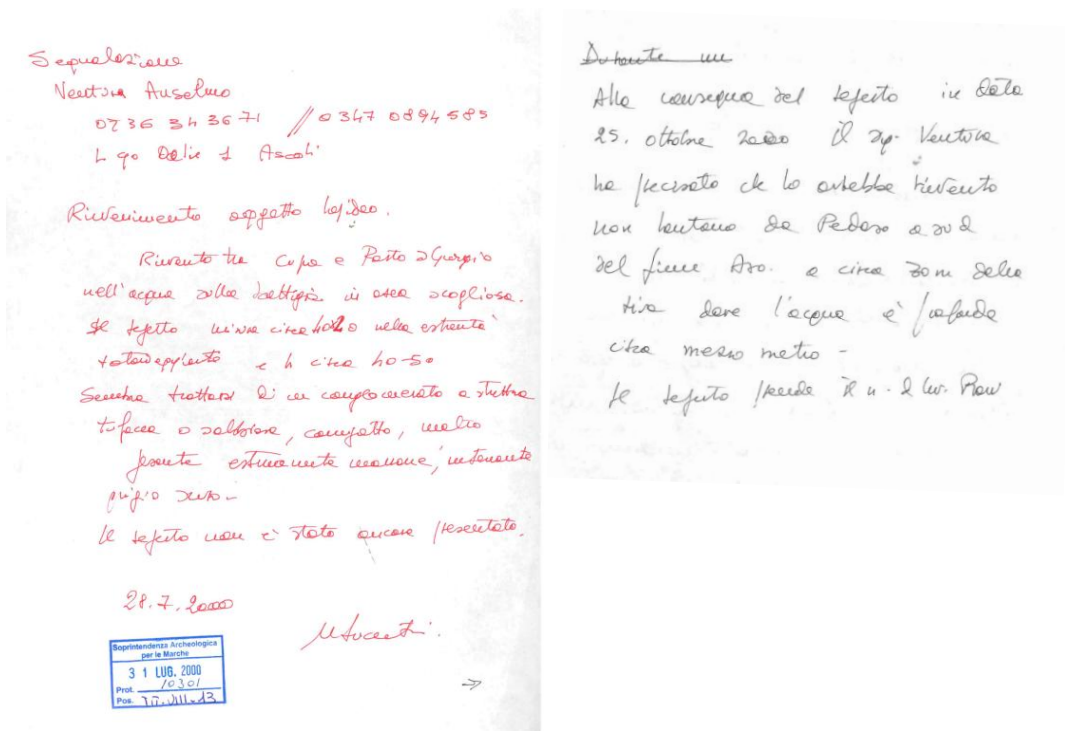 Segnalazione
Ventura Anselmo
0736 343671 // 0347 0894585
L go Dalie 1 Ascoli
Rinvenimento oggetto lapideo.
Rinvenuto tra Cupra e Porto S Giorgio
nell'acqua sulla battigia in area scogliosa.
Il reperto misura circa 40x20 nelle estremità
e h circa 40-50
Sembra trattarsi di un conglomerato a struttura
tufacea o sabbiosa, compatto, molto
pesante esternamente marrone, internamente
grigio scuro -
Il reperto non è stato ancora presentato.
28.7.2000
Soprintendenza Archeologica
per le Marche
31 LUG. 2000
Prot. 10301
Pos.
Durante un
Alla consegna del reperto in data
25. ottobre 2000 il sig. Ventura
ha precisato che lo avrebbe rinvenuto
non lontano da Pedaso a sud
del fiume Aso. a circa 30 m dalla
riva dove l'acqua è profonda
circa mezzo metro -
Il reperto prende il n. d inv.